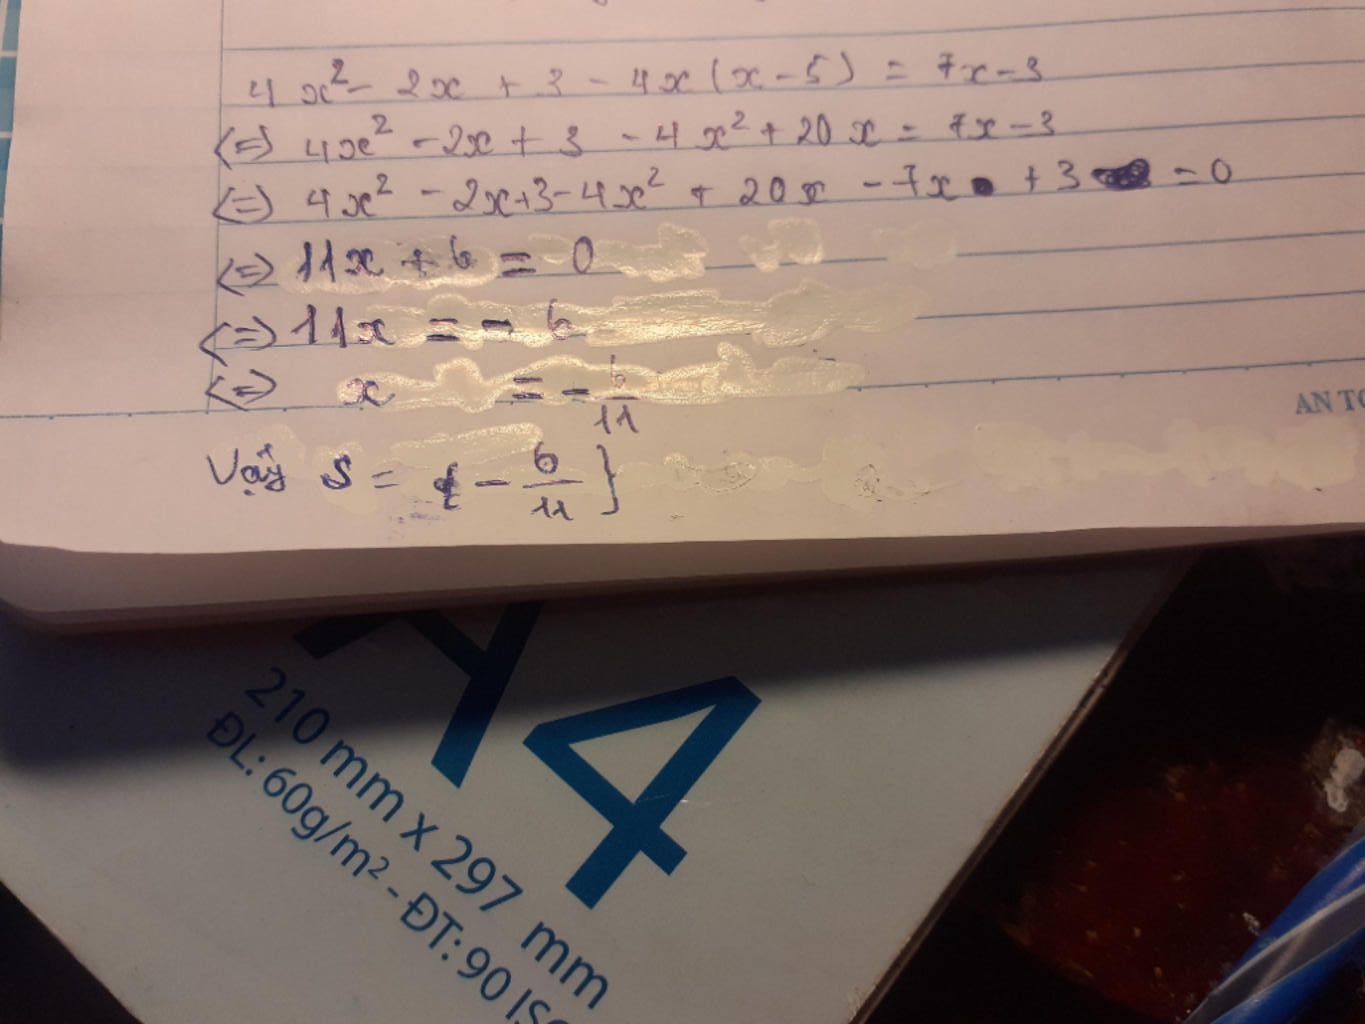 4x² - 2x + 3 - 4x(x - 5) = 7x - 3
<=> 4x² - 2x + 3 - 4x² + 20x = 7x - 3
<=> 4x² - 2x + 3 - 4x² + 20x - 7x + 3 = 0
<=> 11x + 6 = 0
<=> 11x = - 6
<=> x = - 6/11
Vậy S = { - 6/11 }
AN TO
A4
210 mm x 297 mm
ĐL: 60g/m² - ĐT: 90 ISO